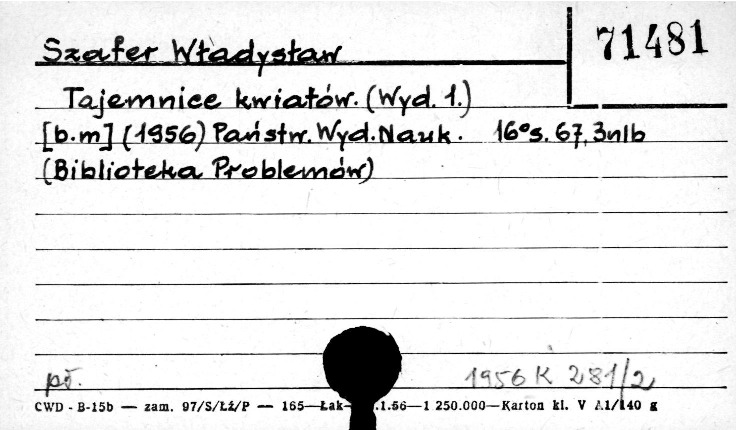 Szafer Władysław
71481
Tajemnice kwiatów. (Wyd. 1.)
[b.m] (1956) Państw. Wyd. Nauk. 16°s. 67, 3nlb
(Biblioteka Problemów)
pł. 1956 K 281/2
CWD - B-15b — zam. 97/S/Łź/P — 165—Łak- .1.56—1 250.000—Karton kl. V A1/140 g